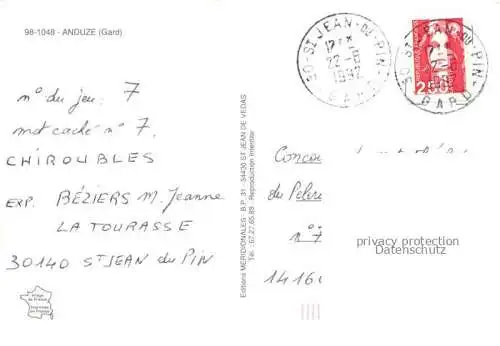 98-1048 - ANDUZE (Gard)
n° du jeu: 7
mot caché n° 7
CHIROUBLES
EXP. BÉZIERS M. Jeanne
LA TOURASSE
30140 ST JEAN du PIN
Editions MERIDIONALES - B.P. 31 - 34430 ST JEAN DE VEDAS
Tél.: 67.27.65.89 - Reproduction interdite
30-ST JEAN-DU-PIN
17H
22-6
1992
GARD
30-ST JEAN-DU-PIN
GARD
2,50
Concou
du Peler
n° 7
1416
privacy protection
Datenschutz